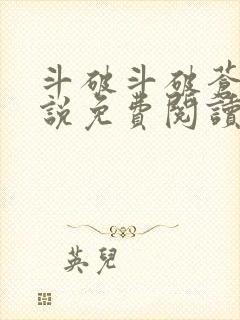 斗破斗破蒼
說免費閱讀
英兒